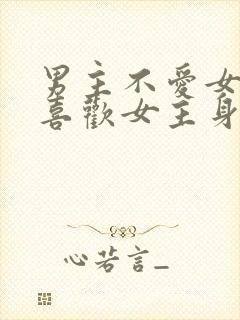 男主不愛女
喜歡女主身
心若言_